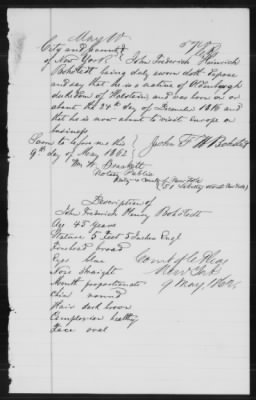 City and County
of New York John Frederick Heinrich
Bohstedt being duly sworn doth depose
and say that he is a native of Oldenburgh
dukedom of Holstein and was born on or
about the 24th day of December 1816 and
that he is now about to visit europe on
business
Sworn to before me this John F H Bohstedt
9th day of May 1862
Notary Public
Description of
John Frederick Henry Bohstedt
Age 45 Years
Stature 5 Feet 5 Inches Engl
Forehead broad
Eyes blue
Nose straight
Mouth proportionate
Chin round
Hair dark brown
Complexion healthy
Face oval
New York
9 May 1862